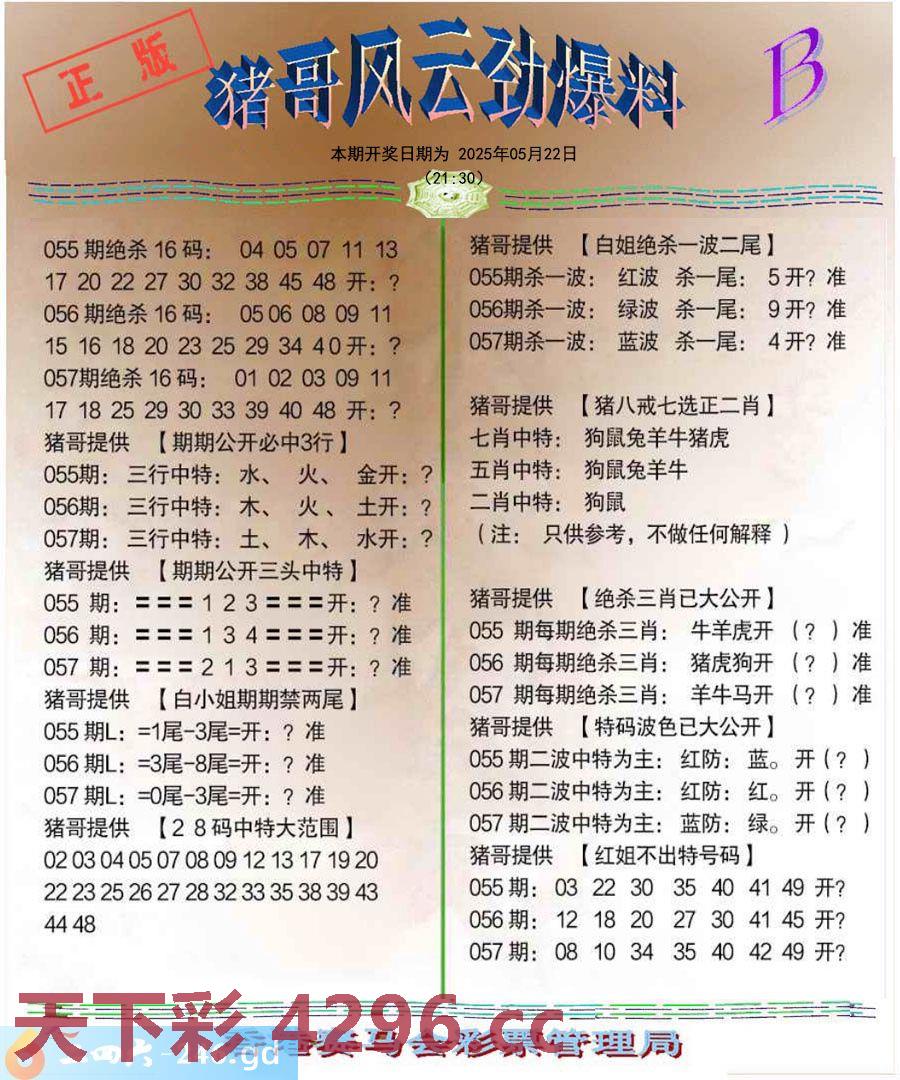 正版
猪哥风云劲爆料
B
本期开奖日期为 2025年05月22日
(21:30)
055期绝杀16码: 04 05 07 11 13
17 20 22 27 30 32 38 45 48 开: ?
056期绝杀16码: 05 06 08 09 11
15 16 18 20 23 25 29 34 40 开: ?
057期绝杀16码: 01 02 03 09 11
17 18 25 29 30 33 39 40 48 开: ?
猪哥提供 【期期公开必中3行】
055期: 三行中特: 水、 火、 金开: ?
056期: 三行中特: 木、 火、 土开: ?
057期: 三行中特: 土、 木、 水开: ?
猪哥提供 【期期公开三头中特】
055 期: === 1 2 3 ===开: ? 准
056 期: === 1 3 4 ===开: ? 准
057 期: === 2 1 3 ===开: ? 准
猪哥提供 【白小姐期期禁两尾】
055期L: =1尾-3尾=开: ? 准
056期L: =3尾-8尾=开: ? 准
057期L: =0尾-3尾=开: ? 准
猪哥提供 【28码中特大范围】
02 03 04 05 07 08 09 12 13 17 19 20
22 23 25 26 27 28 32 33 35 38 39 43
44 48
猪哥提供 【白姐绝杀一波二尾】
055期杀一波: 红波 杀一尾: 5开? 准
056期杀一波: 绿波 杀一尾: 9开? 准
057期杀一波: 蓝波 杀一尾: 4开? 准
猪哥提供 【猪八戒七选正二肖】
七肖中特: 狗鼠兔羊牛猪虎
五肖中特: 狗鼠兔羊牛
二肖中特: 狗鼠
(注: 只供参考,不做任何解释)
猪哥提供 【绝杀三肖已大公开】
055 期每期绝杀三肖: 牛羊虎开 (?) 准
056 期每期绝杀三肖: 猪虎狗开 (?) 准
057 期每期绝杀三肖: 羊牛马开 (?) 准
猪哥提供 【特码波色已大公开】
055期二波中特为主: 红防: 蓝。开(?)
056期二波中特为主: 红防: 红。开(?)
057期二波中特为主: 蓝防: 绿。开(?)
猪哥提供 【红姐不出特号码】
055期: 03 22 30 35 40 41 49 开?
056期: 12 18 20 27 30 41 45 开?
057期: 08 10 34 35 40 42 49 开?
天下彩 4296.cc
马会彩票管理局